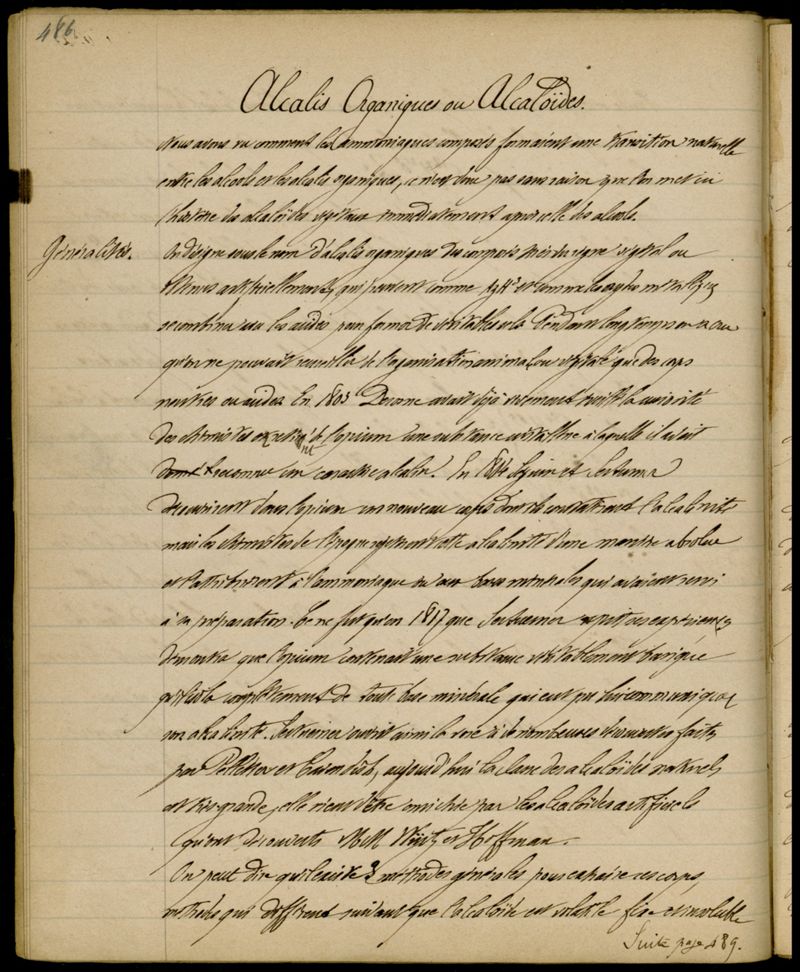 486
Alcalis Organiques ou Alcaloïdes.
Nous avons vu comment les ammoniaques composés formaient une transition naturelle
entre les alcools et les alcalis organiques, ce n'est donc pas sans raison que l'on met ici
l'histoire des alcaloïdes végétaux immédiatement après celle des alcools.
Généralités.
On désigne sous le nom d'alcalis organiques des composés d'origine végétal ou
obtenus artificiellement, qui peuvent comme AzH³ et comme les oxydes métalliques
se combiner avec les acides pour former de véritables sels. Pendant longtemps on a cru
qu'on ne pouvait recueillir de l'organisation animal ou végétale que des corps
neutres ou acides. En 1803 Derosne avait déjà vivement excité la curiosité
des chimistes en retirant de l'opium une substance cristalline à laquelle il avait
reconnu un caractère alcalin. En 1804 Séguin et Sertuerner
découvrirent dans l'opium un nouveau corps dont ils constatèrent l'alcalinité
mais les chimistes de l'époque rejetèrent cette alcalinité d'une manière absolue
et l'attribuèrent à l'ammoniaque ou aux bases minérales qui avaient servi
à sa préparation. Ce ne fut qu'en 1817 que Sertuerner reprit ses expériences
démontra que l'opium contenait une substance véritablement basique
complètement de toute base minérale qui eut pu lui communiquer
son alcalinité. Sertuerner ouvrit ainsi la voie à de nombreuses découvertes faites
par Pelletier et Caventou, aujourd'hui la classe des alcaloïdes naturels
est très grande, elle vient d'être enrichie par les alcaloïdes artificiels
qu'ont découverts MM Würtz et Hoffman.
On peut dire qu'il existe 3 méthodes générales pour extraire ces corps,
méthodes qui diffèrent suivant que l'alcaloïde est volatile fixe et insoluble
Suite page 489.